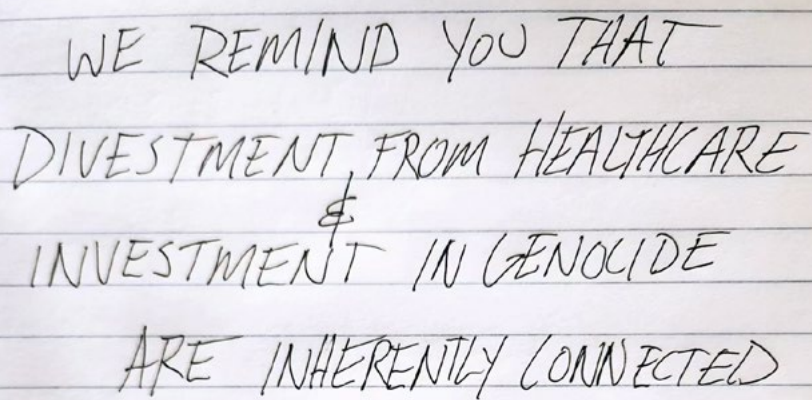 WE REMIND YOU THAT
DIVESTMENT FROM HEALTHCARE
&
INVESTMENT IN GENOCIDE
ARE INHERENTLY CONNECTED